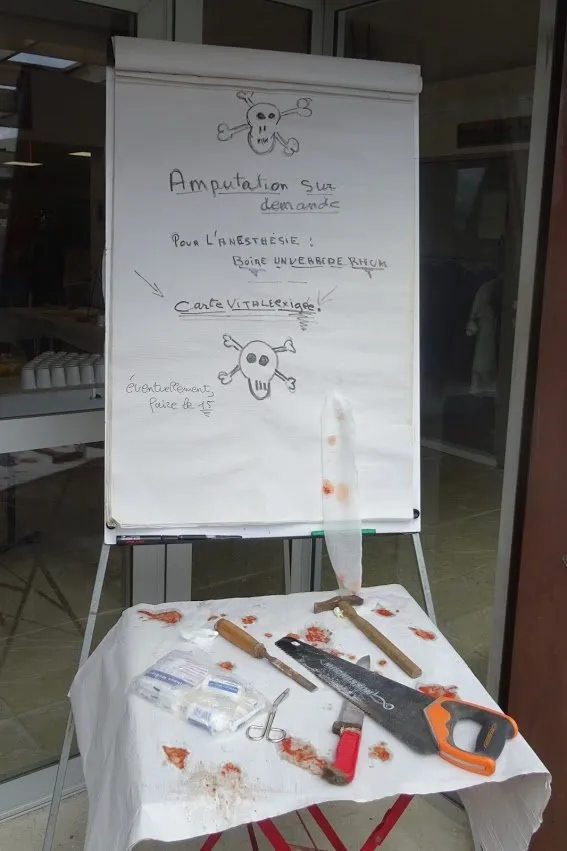 Amputation sur
demande
POUR L'ANESTHÉSIE :
BOIRE UN VERRE DE RHUM
Carte VITALE exigée !
éventuellement,
faire le 15